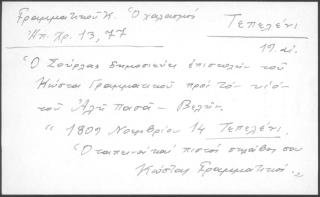 Γραμματικού Κ. Ὁ χαλασμός
Ἠπ. Χρ. 13, 77
Τεπελένι
19. αἰ.
Ὁ Σούρλας δημοσιεύει ἐπιστολήν τοῦ
Κώστα Γραμματικοῦ πρός τόν υἱόν
τοῦ Ἀλῆ Πασᾶ - Βελῆν.
"1809 Νοεμβρίου 14 Τεπελένι.
Ὁ ταπεινός καί πιστός σκλάβος σου
Κώστας Γραμματικός."